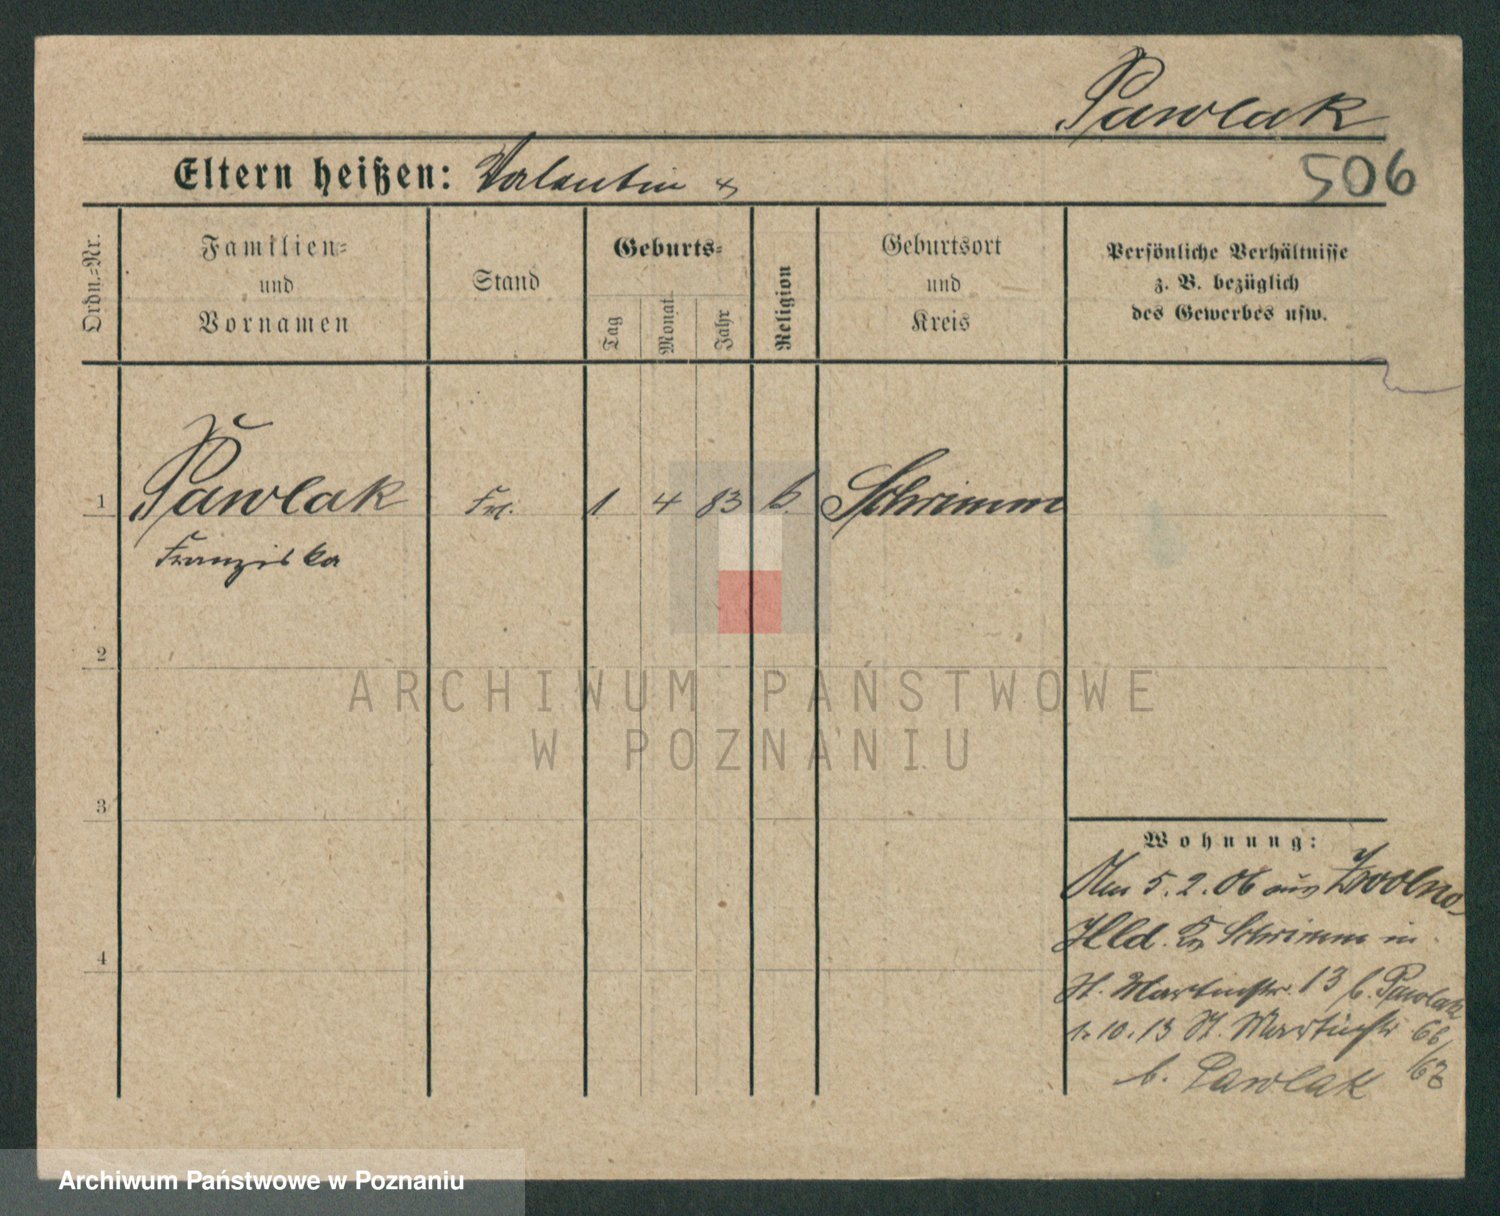 Pawlak
Eltern heißen: Valentin
506
Ordn.=Nr.
Familien=
und
Vornamen
Stand
Geburts=
Tag
Monat
Jahr
Religion
Geburtsort
und
Kreis
Persönliche Verhältnisse
z. B. bezüglich
des Gewerbes usw.
1 Pawlak Frl. 1. 4 83 k. Schrimm
Franziska
2
ARCHIWUM PAŃSTWOWE
W POZNANIU
3
Wohnung:
Am 5.2.06 aus Zwolno
Hld. Schrimm in
St. Martinstr. 13 b. Pawlak
1.10.13 St. Martinstr 66
/67
b. Pawlak
4
Archiwum Państwowe w Poznaniu